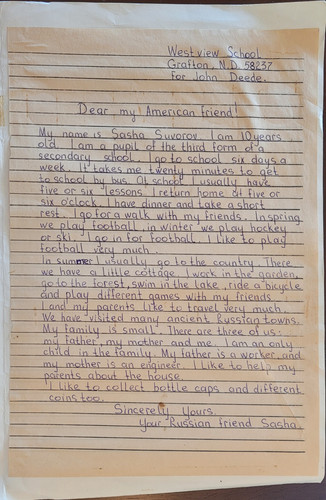 Westview School
Grafton, N.D. 58237
for John Deede.
Dear, my American friend!
My name is Sasha Suvorov. I am 10 years
old. I am a pupil of the third form of a
secondary school. I go to school six days a
week. It takes me twenty minutes to get
to school by bus. At school I usually have
five or six lessons. I return home at five or
six o'clock. I have dinner and take a short
rest. I go for a walk with my friends. In spring
we play football, in winter we play hockey
or ski. I go in for football. I like to play
football very much.
In summer I usually go to the country. There
we have a little cottage. I work in the garden,
go to the forest, swim in the lake, ride a bicycle
and play different games with my friends.
I and my parents like to travel very much.
We have visited many ancient Russian towns.
My family is small. There are three of us:
my father, my mother and me. I am an only
child in the family. My father is a worker and
my mother is an engineer. I like to help my
parents about the house.
I like to collect bottle caps and different
coins too.
Sincerely yours.
Your Russian friend Sasha.